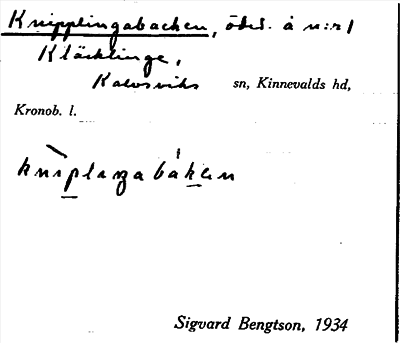 Knipplingabacken, öded. å n:r 1
Kläcklinge,
Kalvsviks sn, Kinnevalds hd,
Kronob. l.
knìplıŋabákən
Sigvard Bengtson, 1934